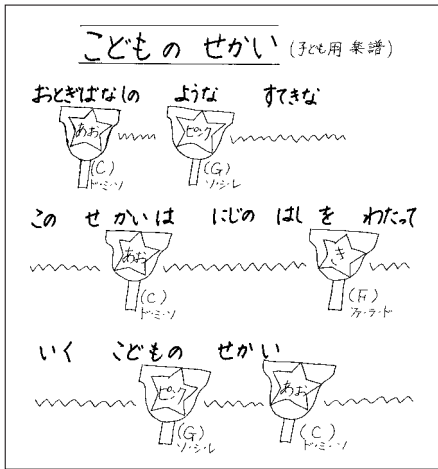 こどもの せかい (子ども用 楽譜)
おとぎばなしの ような すてきな
あお ピンク
(C) (G)
ド・ミ・ソ ソ・シ・レ
この せかいは にじの はし を わたって
あお き
(C) (F)
ド・ミ・ソ ファ・ラ・ド
いく こどもの せかい
ピンク あお
(G) (C)
ソ・シ・レ ド・ミ・ソ